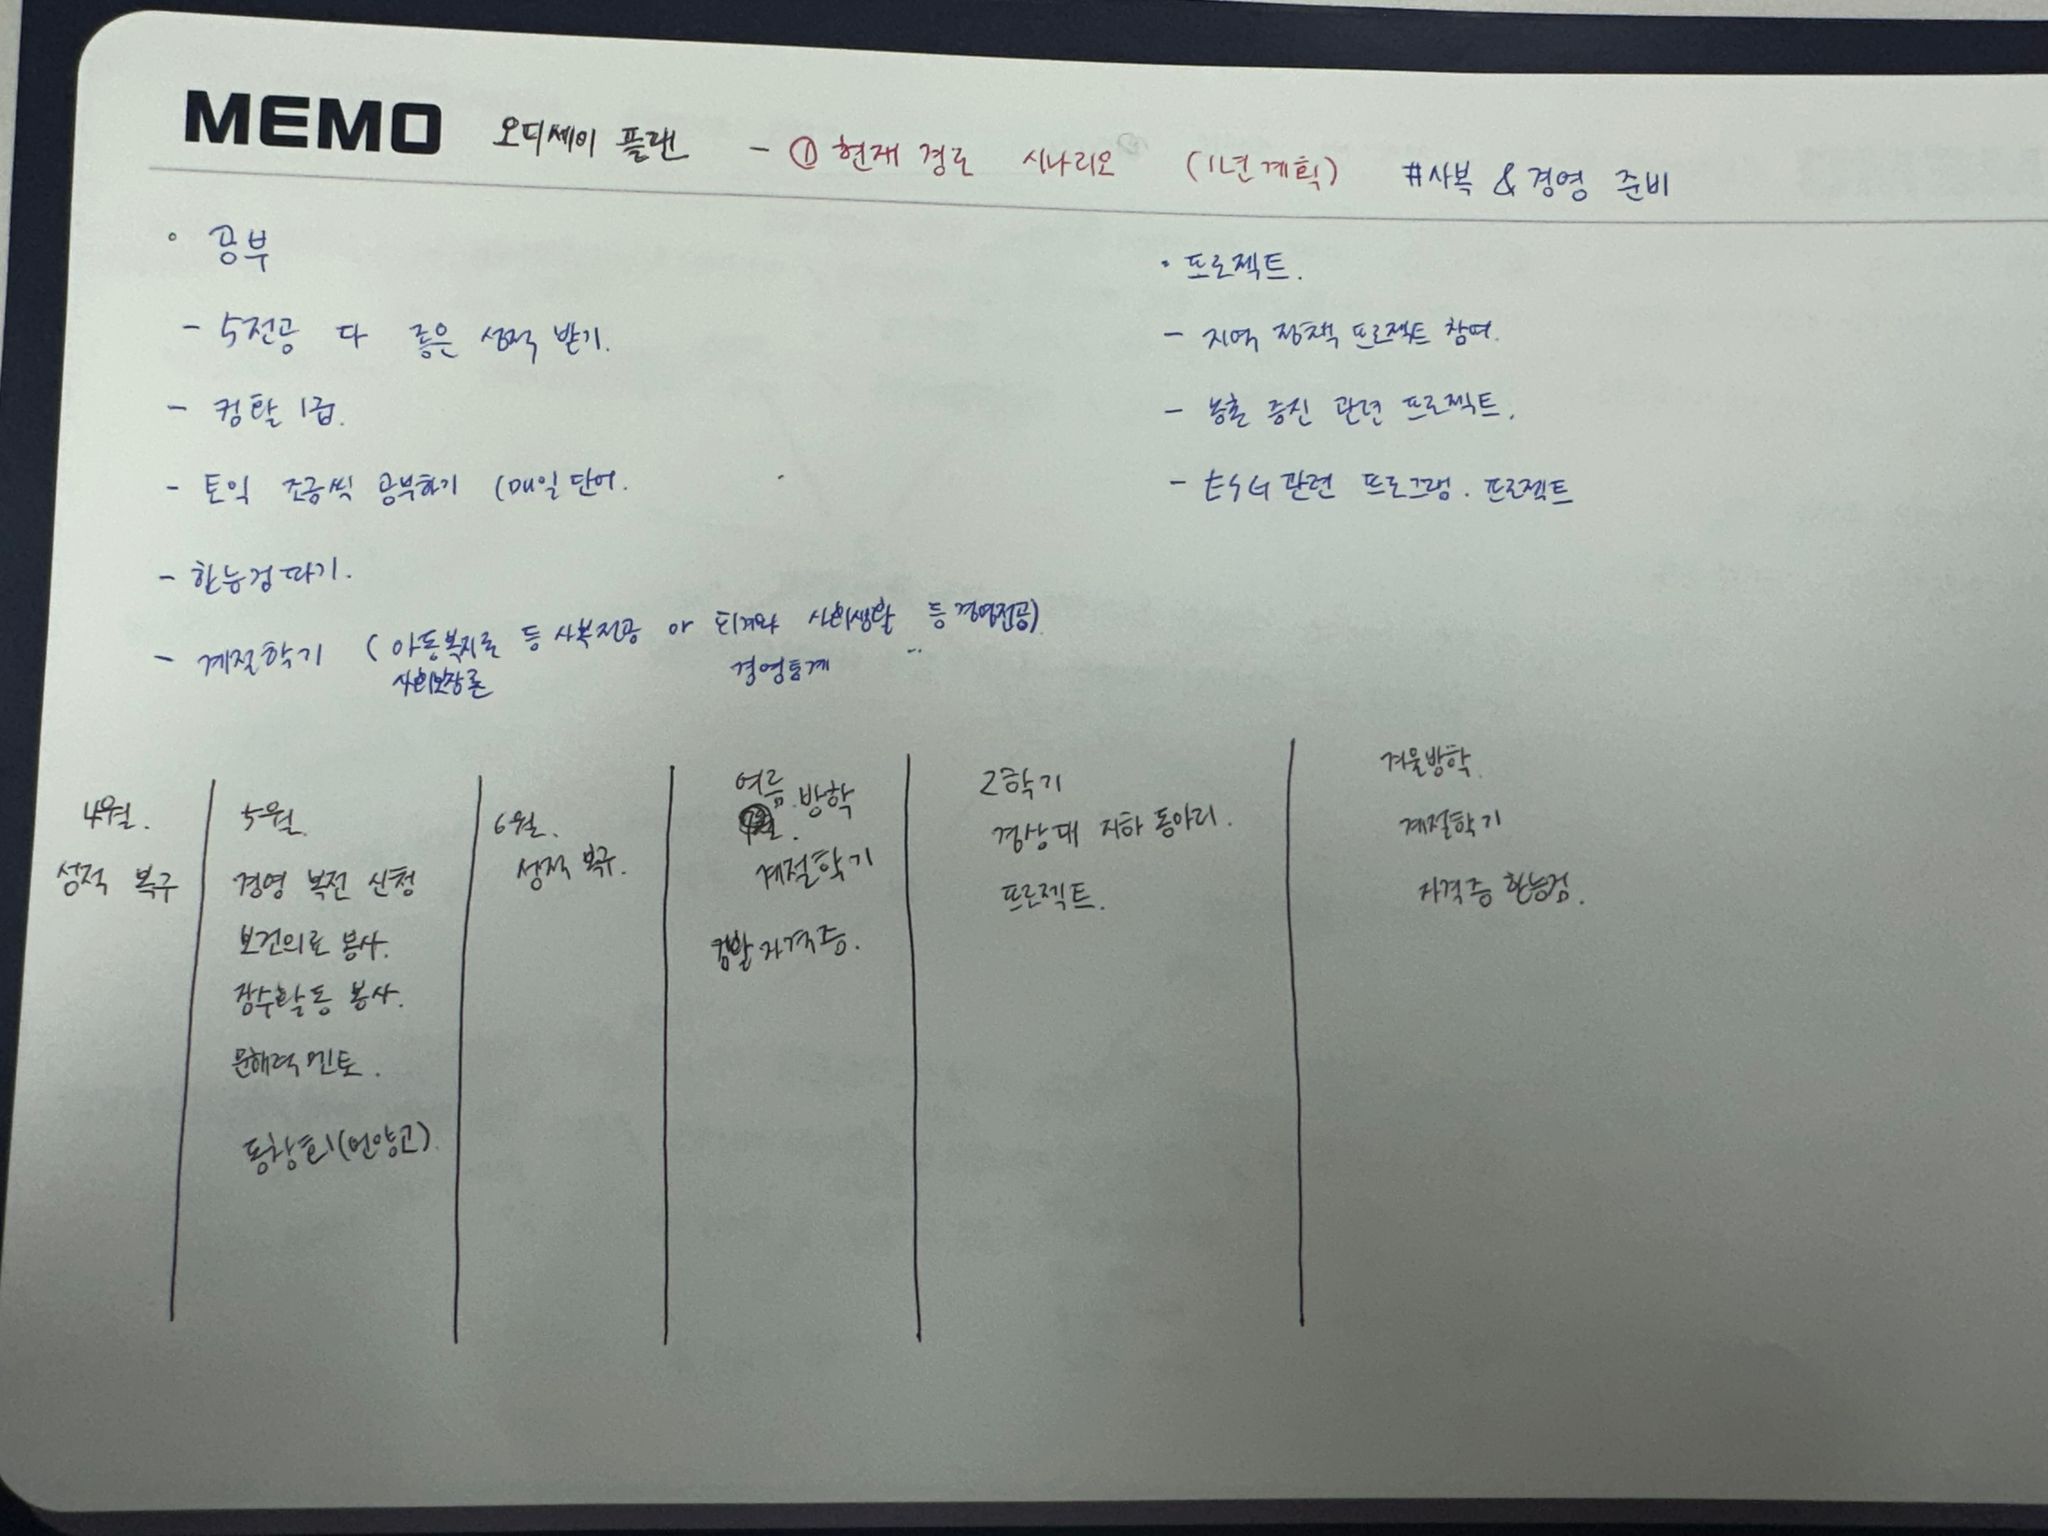 MEMO 오디세이 플랜 - ① 현재 경로 시나리오 (1년계획) #사복 & 경영 준비
• 공부
- 5전공 다 좋은 성적 받기.
- 컴활 1급.
- 토익 조금씩 공부하기 (매일 단어.
- 한능검 따기.
- 계절학기 ( 아동복지론 등 사복전공 or 회계와 사회생활 등 경영전공)
사회보장론 경영통계
• 프로젝트.
- 지역 정책 프로젝트 참여.
- 농촌 증진 관련 프로젝트.
- ESG 관련 프로그램. 프로젝트
4월.
성적 복구
5월.
경영 복전 신청
보건의료 봉사.
장수활동 봉사.
문해력 멘토.
동창회(언양고).
6월.
성적 복구.
여름
방학
계절학기
컴활 자격증.
2학기
경상대 지하 동아리.
프로젝트.
겨울방학.
계절학기
자격증 한능검.